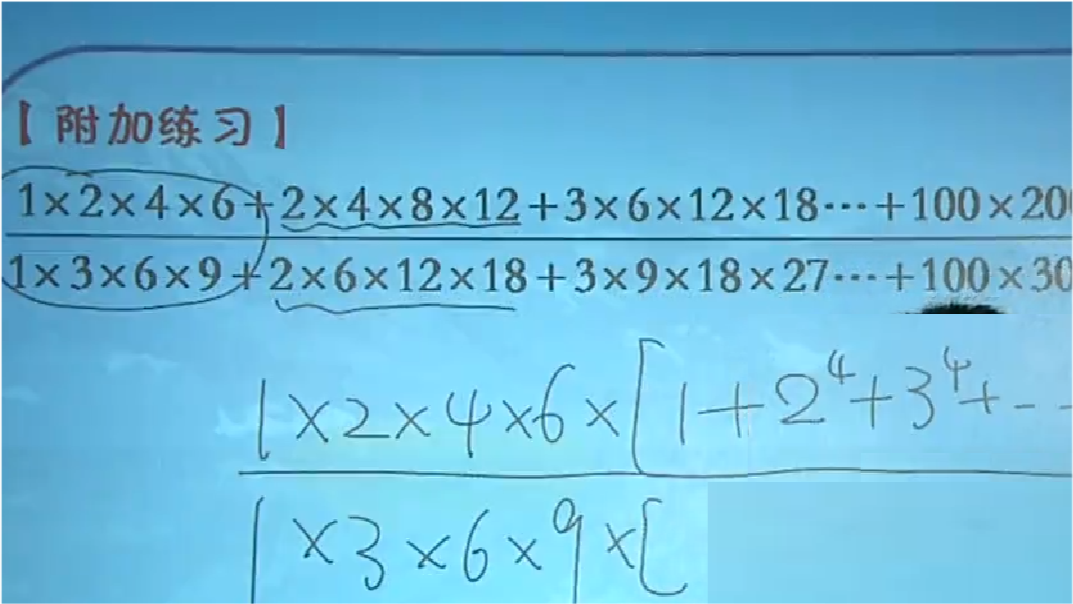 【附加练习】
1×2×4×6+2×4×8×12+3×6×12×18…+100×200
1×3×6×9+2×6×12×18+3×9×18×27…+100×30
1×2×4×6×[1+2⁴+3⁴+--
1×3×6×9×[